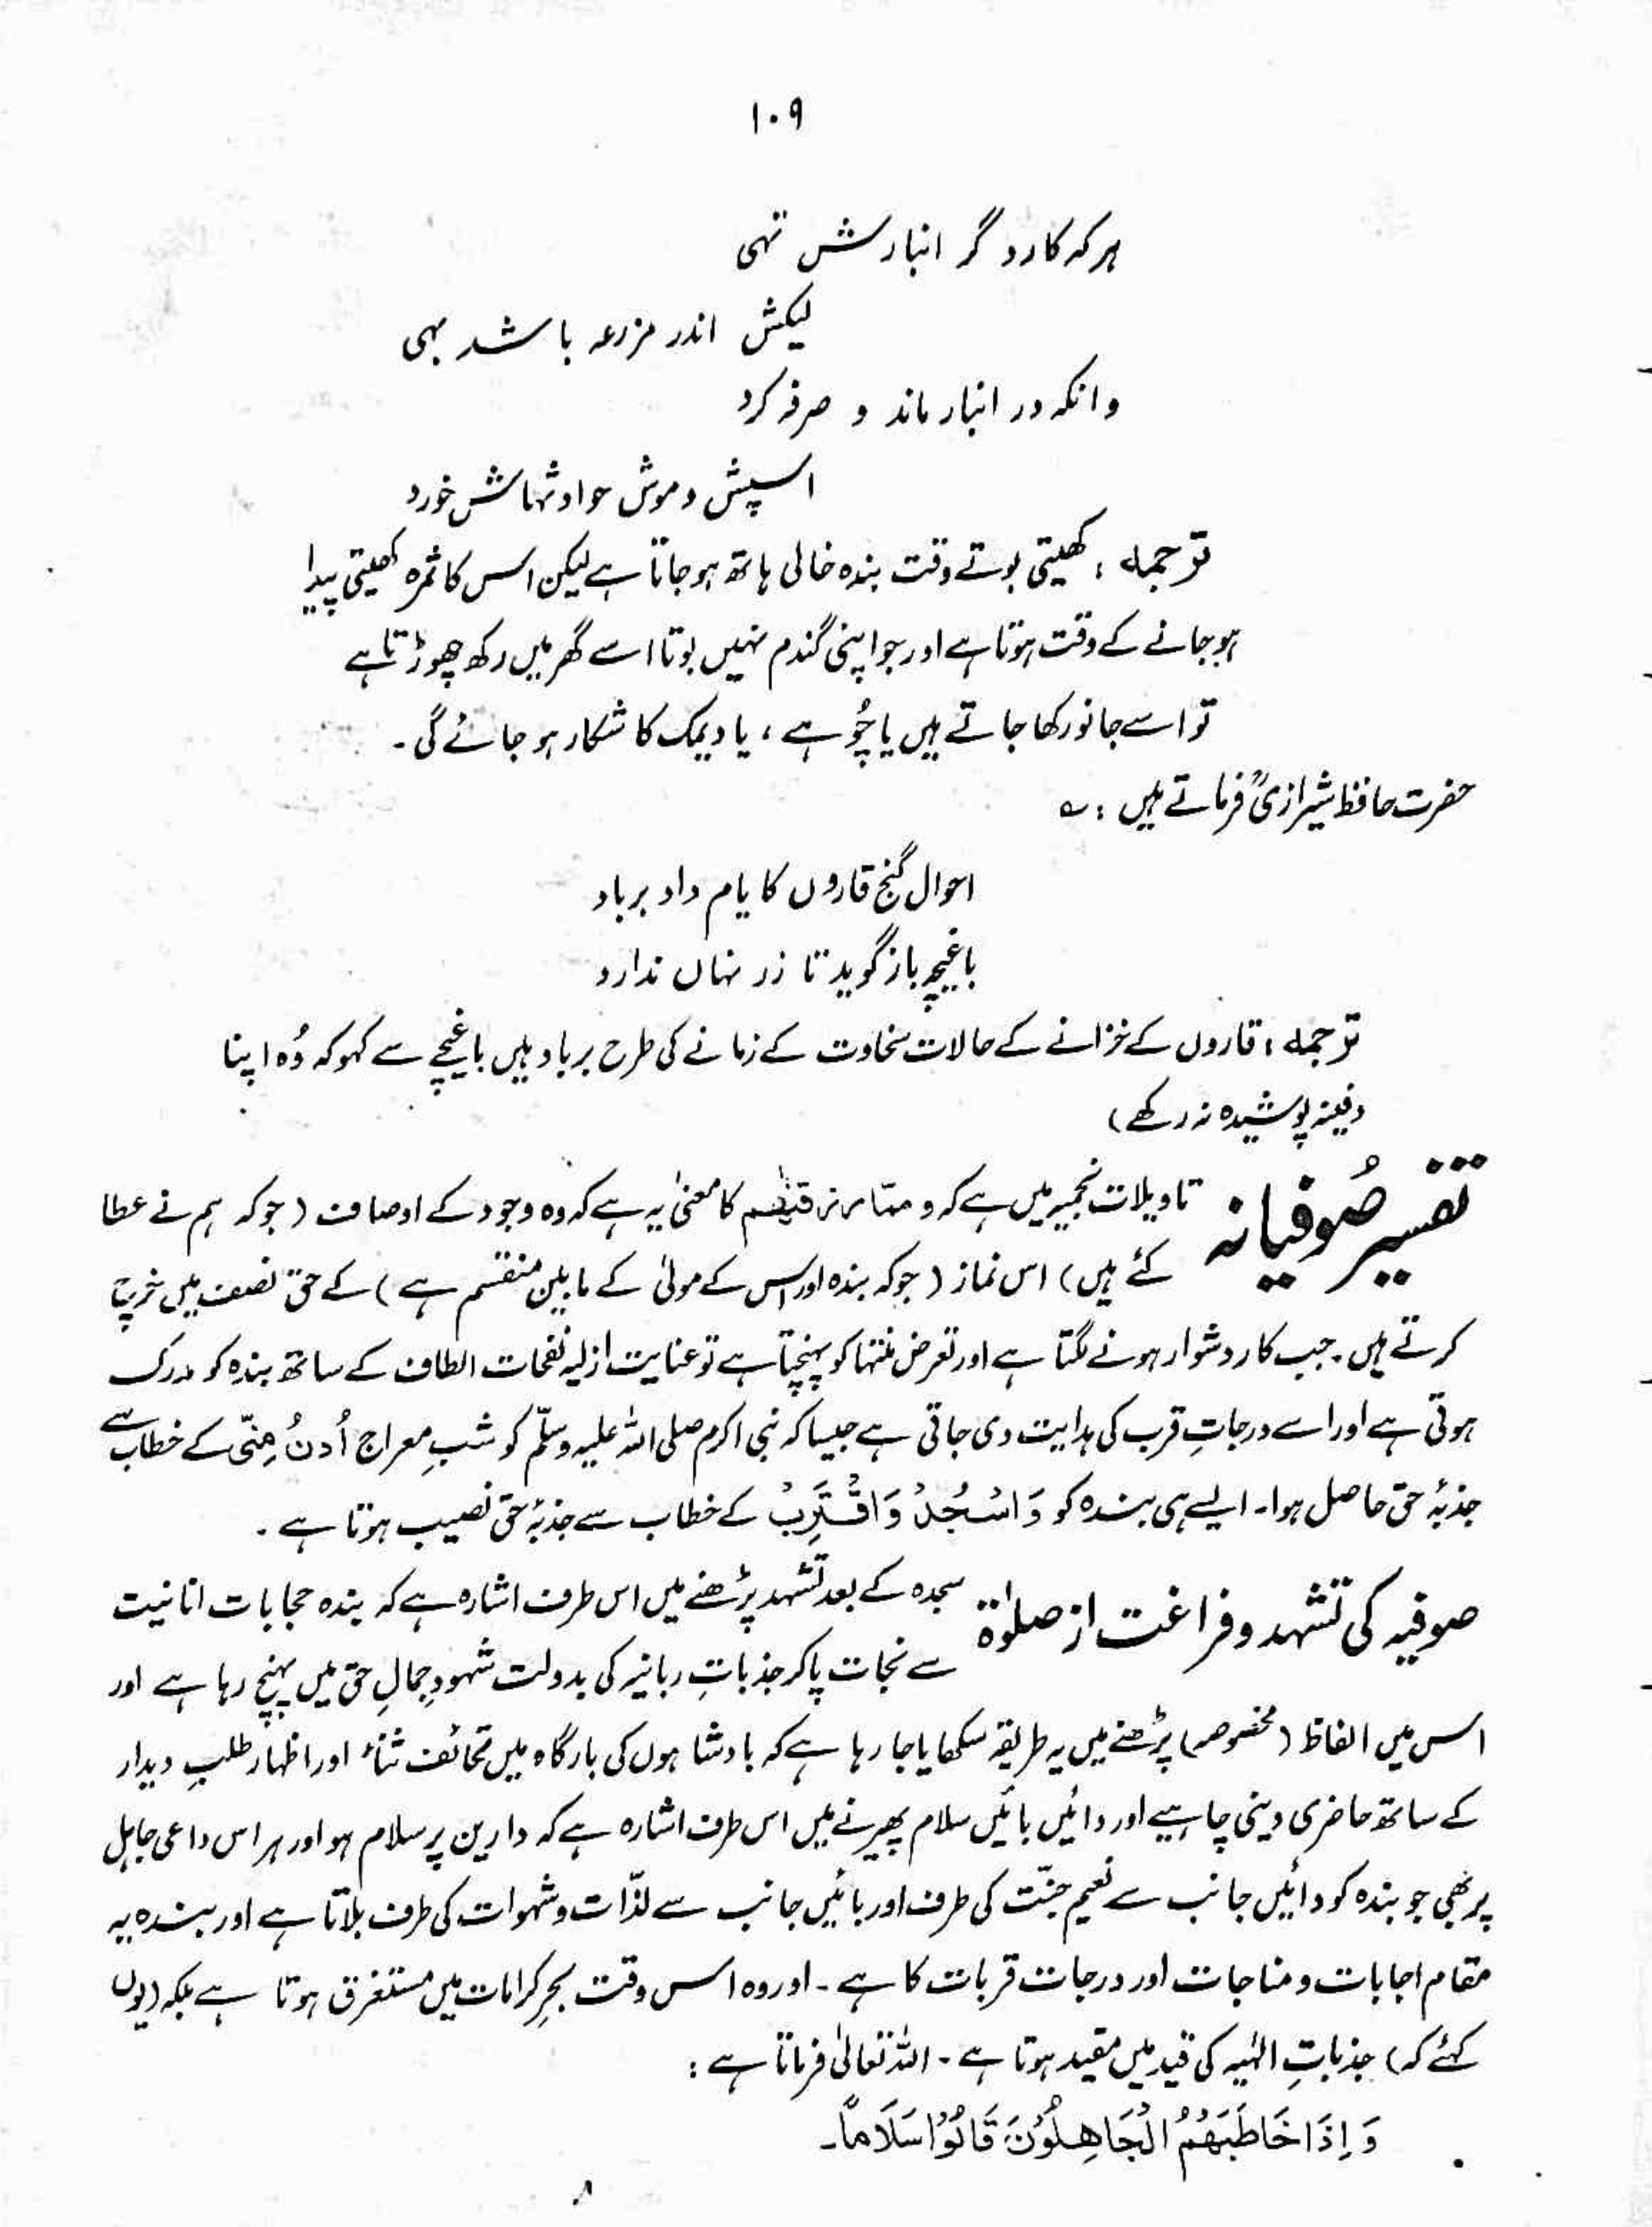 ۱۰۹
ہر کہ کارد گردد انبارش تہی
لیکش اندر مزرعہ باشد بہی
وانکہ در انبار ماند و صرفہ کرد
اسپش و موش حوادثہاش خورد
ترجمہ : کھیتی بوتے وقت بندہ خالی ہاتھ ہو جاتا ہے لیکن اس کا ثمرہ کھیتی پیدا
ہو جانے کے وقت ہوتا ہے اور جو اپنی گندم نہیں بوتا اسے گھر میں رکھ چھوڑتا ہے
تو اسے جانور کھا جاتے ہیں یا چُوہے ، یا دیمک کا شکار ہو جائے گی ۔
حضرت حافظ شیرازیؒ فرماتے ہیں : ؎
احوال گنج قاروں کایام داد برباد
باغیچہ باز گوید تا زر نہاں ندارد
ترجمہ : قارون کے خزانے کے حالات سخاوت کے زمانے کی طرح برباد ہیں باغیچے سے کہو کہ وُہ اپنا
دفینہ پوشیدہ نہ رکھے)
تفسیر صُوفیانہ تاویلات نجمیہ میں ہے کہ و ممّا رزقنٰھم کا معنیٰ یہ ہے کہ وہ وجود کے اوصاف (جو کہ ہم نے عطا
کئے ہیں) اس نماز (جو کہ بندہ اور اس کے مولیٰ کے مابین منقسم ہے) کے حق نصف میں خرچ
کرتے ہیں ۔ جب کار دشوار ہونے لگتا ہے اور تعرض منتہا کو پہنچتا ہے تو عنایت ازلیہ نفحات الطاف کے ساتھ بندہ کو مدرک
ہوتی ہے اور اسے درجاتِ قرب کی ہدایت دی جاتی ہے جیسا کہ نبی اکرم صلی اللہ علیہ وسلّم کو شبِ معراج اُدنُ مِنّی کے خطاب سے
جذبۂ حق حاصل ہوا۔ ایسے ہی بندہ کو وَاسْجُدْ وَاقْتَرِبْ کے خطاب سے جذبۂ حق نصیب ہوتا ہے ۔
صوفیہ کی تشہد و فراغت از صلوٰۃ سجدہ کے بعد تشہد پڑھنے میں اس طرف اشارہ ہے کہ بندہ حجابات انانیت
سے نجات پا کر جذباتِ ربانیہ کی بدولت شہودِ جمالِ حق میں پہنچ رہا ہے اور
اس میں الفاظ (مخصوصہ) پڑھنے میں یہ طریقہ سکھایا جا رہا ہے کہ بادشاہوں کی بارگاہ میں تحائف ثناء اور اظہار طلبِ دیدار
کے ساتھ حاضری دینی چاہیے اور دائیں بائیں سلام پھیرنے میں اس طرف اشارہ ہے کہ دارین پر سلام ہو اور ہر اس داعی جاہل
پر بھی جو بندہ کو دائیں جانب سے نعیم جنّت کی طرف اور بائیں جانب سے لذّات و شہوات کی طرف بلاتا ہے اور بندہ یہ
مقام اجابات و مناجات اور درجات قربات کا ہے ۔ اور وہ اس وقت بحرِ کرامات میں مستغرق ہوتا ہے بلکہ (یوں
کہئے کہ) جذباتِ الٰہیہ کی قید میں مقید ہوتا ہے ۔ اللہ تعالیٰ فرماتا ہے :
وَ اِذَا خَاطَبَھُمُ الْجَاھِلُوْنَ قَالُوْا سَلَامًا۔